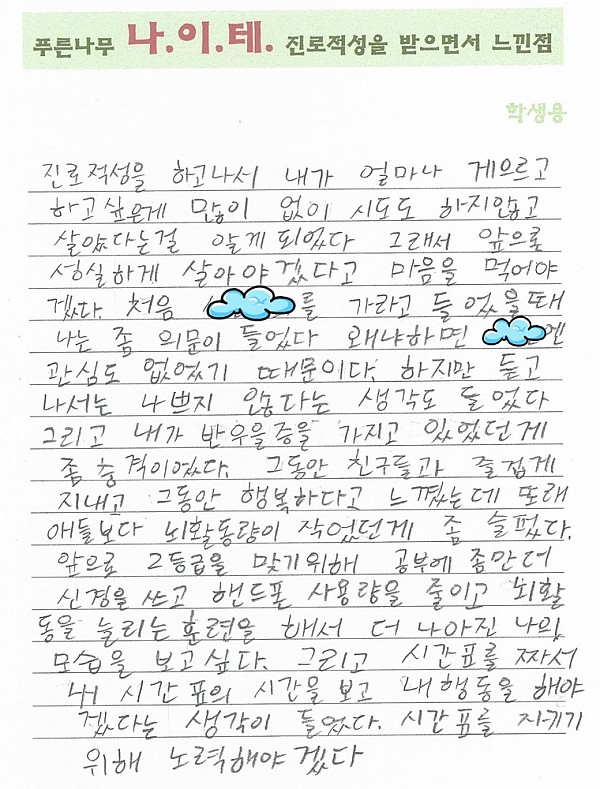 푸른나무 나.이.테. 진로적성을 받으면서 느낀점
학생용
진로적성을 하고나서 내가 얼마나 게으르고
하고싶은게 많이 없이 시도도 하지않고
살았다는걸 알게되었다 그래서 앞으로
성실하게 살아야겠다고 마음을 먹어야
겠다. 처음 를 가라고 들었을때
나는 좀 의문이 들었다 왜냐하면 엔
관심도 없었기 때문이다. 하지만 듣고
나서는 나쁘지 않다는 생각도 들었다
그리고 내가 반우울증을 가지고 있었던게
좀 충격이었다. 그동안 친구들과 즐겁게
지내고 그동안 행복하다고 느꼈는데 또래
애들보다 뇌활동량이 작았던게 좀 슬펐다.
앞으로 2등급을 맞기위해 공부에 좀만더
신경을 쓰고 핸드폰 사용량을 줄이고 뇌활
동을 늘리는 훈련을 해서 더 나아진 나의
모습을 보고싶다. 그리고 시간표를 짜서
내 시간표의 시간을 보고 내행동을 해야
겠다는 생각이 들었다. 시간표를 지키기
위해 노력해야겠다